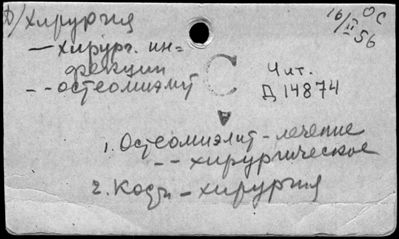 Ф/Хирургия
16/II 56
ОС
— хирург. ин=
фекции
-- остеомиэлит
С
Чит.
Д 14874
1. Остеомиэлит - лечение
-- хирургическое
2. Кость - хирургия